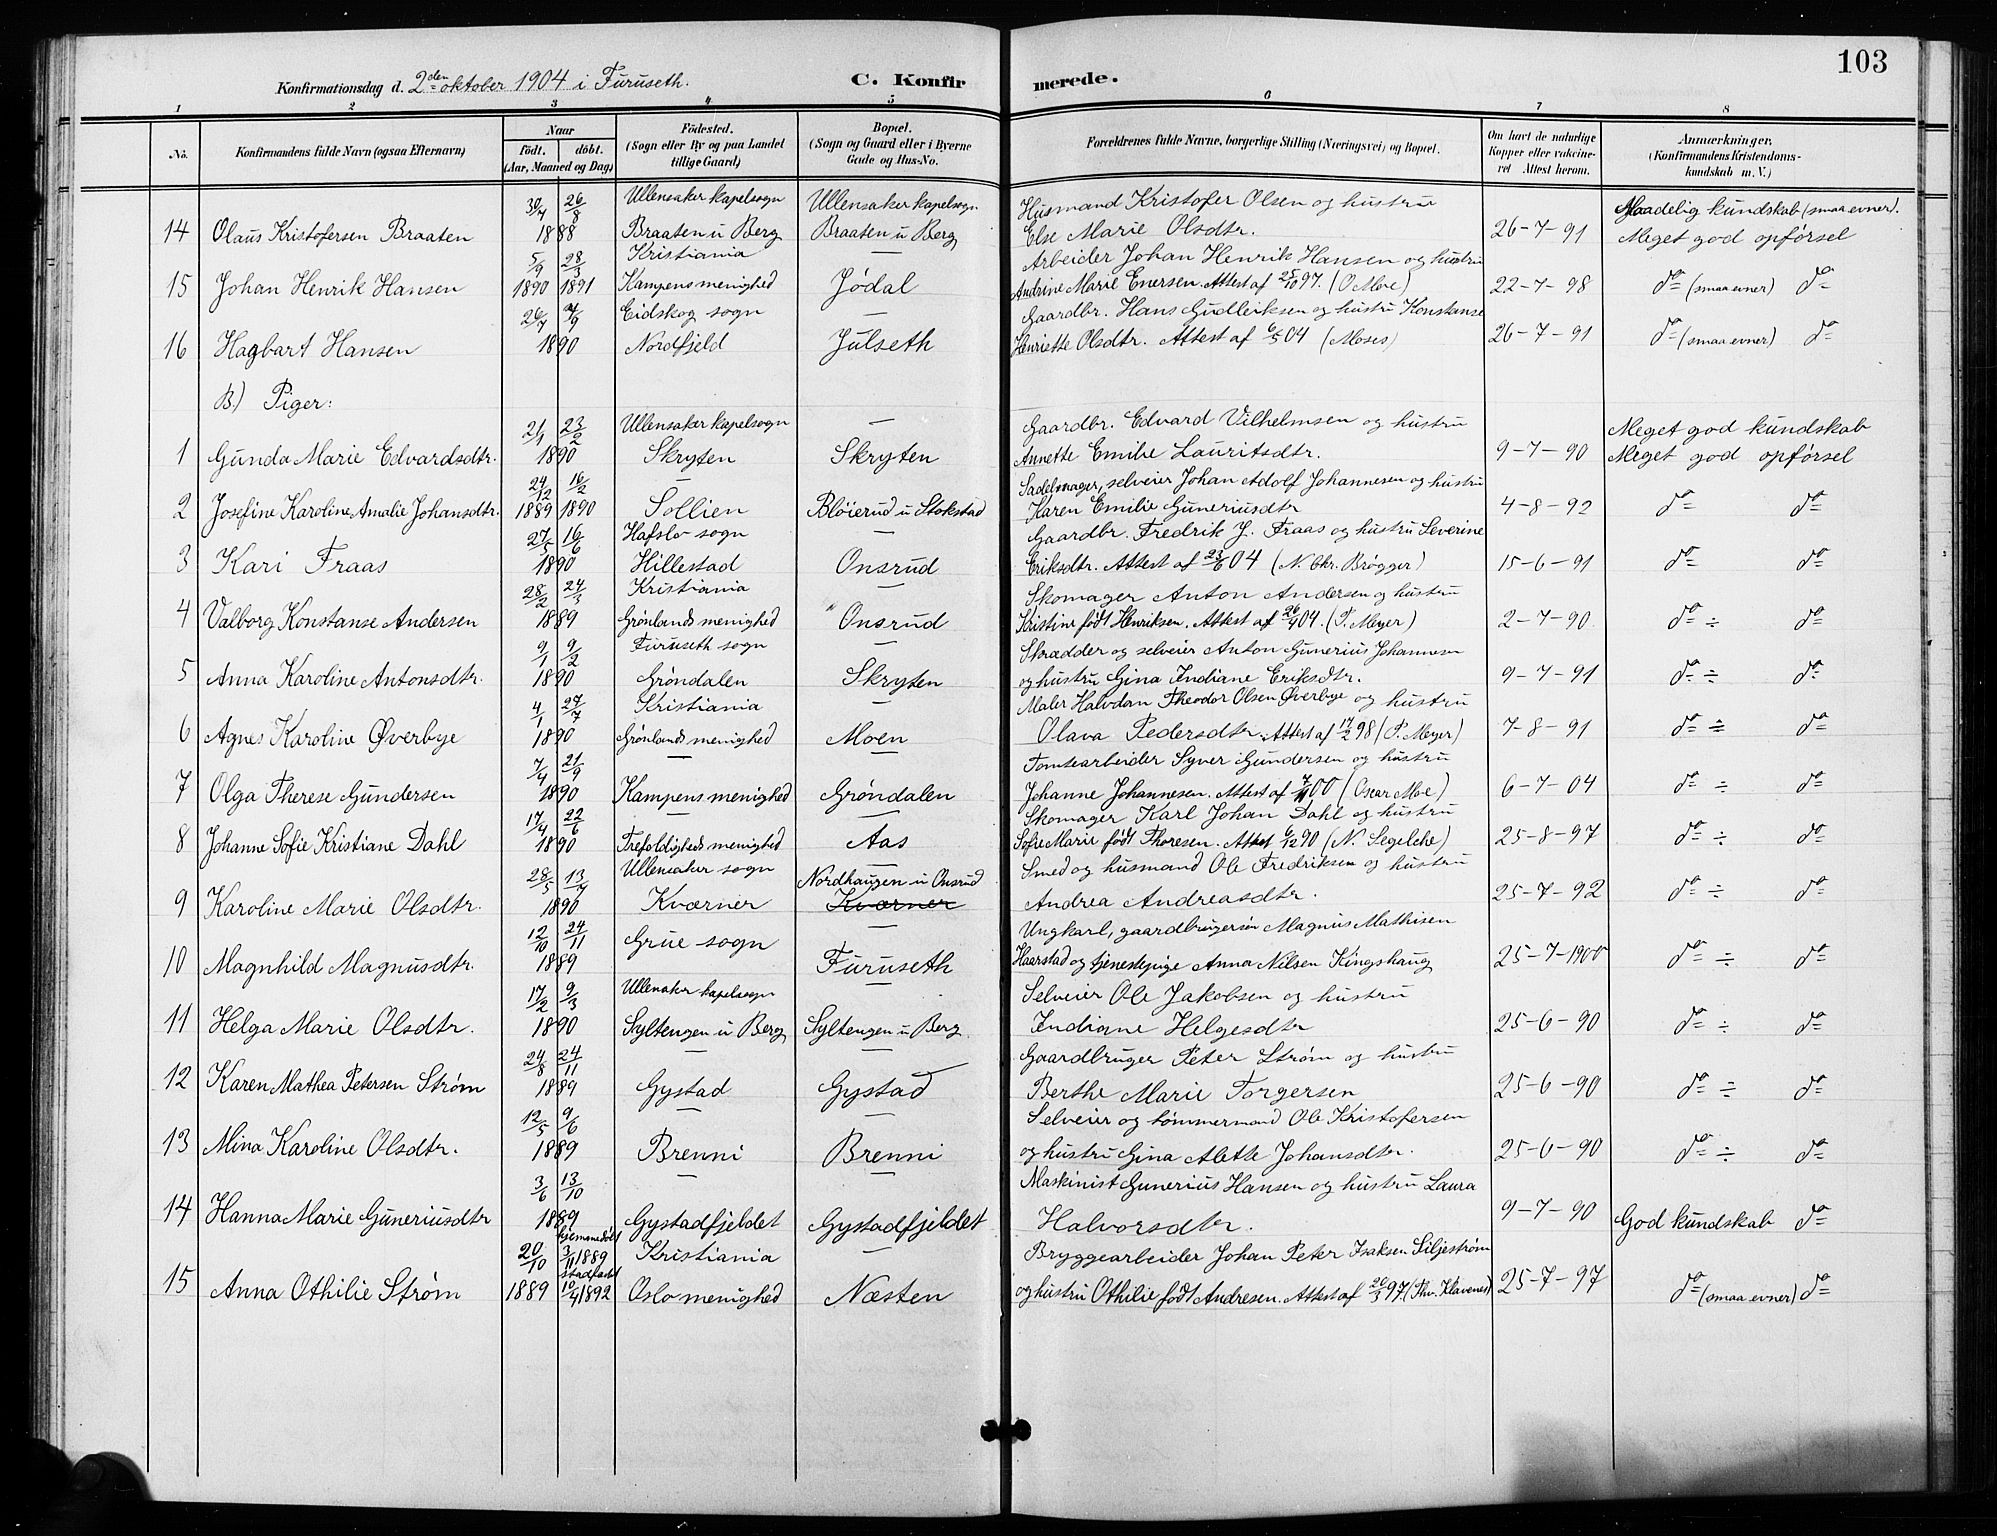 103
Konfirmationsdag d. 2den oktober 1904 i Furuseth. C. Konfirmerede.
1 2 3 4 5 6 7 8
No. Konfirmandens fulde Navn (ogsaa Efternavn) Naar født. døbt. (Aar, Maaned og Dag) Fødested. (Sogn eller By og paa Landet tillige Gaard) Bopæl. (Sogn og Gaard eller i Byerne Gade og Hus-No. Forældrenes fulde Navne, borgerlige Stilling (Næringsvei) og Bopæl. Om havt de naturlige Kopper eller vaccineret Attest herom. Anmærkninger. (Konfirmandens Kristendomskundskab m. V.)
30/4 26/8 Ullensaker kapelsogn Ullensaker kapelsogn Husmand Kristofer Olsen og hustru Maadelig kundskab (smaa evner).
14 Olaus Kristofersen Braaten 1888 Braaten u Berg Braaten u Berg Else Marie Olsdtr. 26-7-91 Meget god opførsel
5/9 28/3 Kristiania — Arbeider Johan Henrik Hansen og hustru
15 Johan Henrik Hansen 1890 1891 Kampens menighed Jødal Andrine Marie Enersen. Attest af 25/10 97. (O Moe) 22-7-98 do (smaa evner) do
26/7 /9 Eidskog sogn — Gaardbr. Hans Gudleiksen og hustru Konstanse
16 Hagbart Hansen 1890 Nordfjeld Julseth Henriette Olsdtr. Attest af 6/5 04 (Moses) 26-7-91 do (smaa evner) do
B.) Piger:
21/1 23/2 Ullensaker kapelsogn — Gaardbr. Edvard Vilhelmsen og hustru Meget god kundskab
1 Gunda Marie Edvardsdtr. 1890 Skryten Skryten Annette Emilie Lauritsdtr. 9-7-90 Meget god opførsel
24/12 16/2 — Sadelmager, selveier Johan Adolf Johannesen og hustru
2 Josefine Karoline Amalie Johansdtr. 1889 1890 Sollien Bløierud u Stokstad Karen Emilie Guneriusdtr 4-8-92 do do
27/5 16/6 Hafslo sogn — Gaardbr. Fredrik J. Fraas og hustru Severine
3 Kari Fraas 1890 Hillestad Onsrud Eriksdtr. Attest af 23/6 04 (N. Chr. Brøgger) 15-6-91 do do
28/2 24/3 Kristiania — Skomager Anton Andersen og hustru
4 Valborg Konstanse Andersen 1889 Grønlands menighed Onsrud Kristine født Henriksen. Attest af 26/9 04. (P. Meyer) 2-7-90 do ÷ do
9/1 9/2 Furuseth sogn — Skrædder og selveier Anton Gunerius Johannesen
5 Anna Karoline Antonsdtr. 1890 Grøndalen Skryten og hustru Gina Indiane Eriksdtr. 9-7-91 do ÷ do
4/1 27/7 Kristiania — Maler Halvdan Theodor Olsen Øverbye og hustru
6 Agnes Karoline Øverbye 1890 Grønlands menighed Moen Olava Pedersdtr. Attest af 17/2 98 (P. Meyer) 7-8-91 do ÷ do
7/4 21/9 — — Tomtearbeider Syver Gundersen og hustru
7 Olga Therese Gundersen 1890 Kampens menighed Grøndalen Johanne Johannesen. Attest af 7/11 00 (Oscar Moe) 6-7-04 do ÷ do
17/4 22/6 — — Skomager Karl Johan Dahl og hustru
8 Johanne Sofie Kristiane Dahl 1890 Trefoldigheds menighed Aas Sofie Marie født Thoresen. Attest 6/12 90 (N. Segelcke) 25-8-97 do ÷ do
28/5 13/7 Ullensaker sogn Nordhaugen u Onsrud Smed og husmand Ole Fredriksen og hustru
9 Karoline Marie Olsdtr. 1890 Kværner Kværner Andrea Andreasdtr. 25-7-92 do ÷ do
12/10 24/11 Grue sogn — Ungkarl, gaardbrugersøn Magnus Mathisen
10 Magnhild Magnusdtr. 1889 Furuseth Haarstad og tjenestepige Anna Nilsen Kingshaug 25-7-1900 do ÷ do
17/2 9/3 Ullensaker kapelsogn — Selveier Ole Jakobsen og hustru
11 Helga Marie Olsdtr. 1890 Syltengen u Berg Syltengen u Berg. Indiane Helgesdtr 25-6-90 do ÷ do
24/8 24/11 — — Gaardbruger Peter Strøm og hustru
12 Karen Mathea Petersen Strøm 1889 Gystad Gystad Berthe Marie Torgersen 25-6-90 do ÷ do
12/5 9/6 — — Selveier og tømmermand Ole Kristofersen
13 Mina Karoline Olsdtr. 1889 Brenni Brenni og hustru Gina Alette Johansdtr. 25-6-90 do ÷ do
3/6 13/10 — — Maskinist Gunerius Hansen og hustru Laura
14 Hanna Marie Guneriusdtr 1889 Gystadfjeldet Gystadfjeldet Halvorsdtr. 9-7-90 God kundskab do
20/10 hjemmedøbt 3/11 1889 Kristiania — Bryggearbeider Johan Peter Isaksen Siljestrøm
15 Anna Othilie Strøm 1889 stadfæst 10/4 1892 Oslo menighed Næsten og hustru Othilie født Andresen. Attest af 26/3 97. (Thv. Klavenes) 25-7-97 do (smaa evner) do